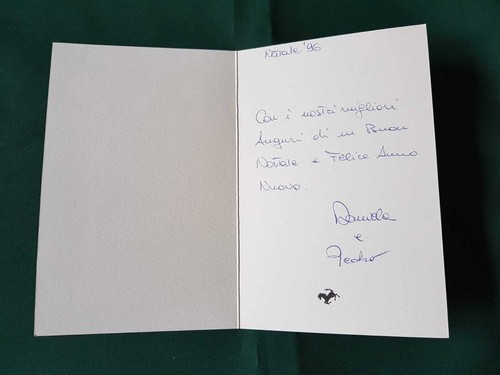 Natale '96
Con i nostri migliori
Auguri di un Buon
Natale e Felice Anno
Nuovo.
Daniela
e
Pedro